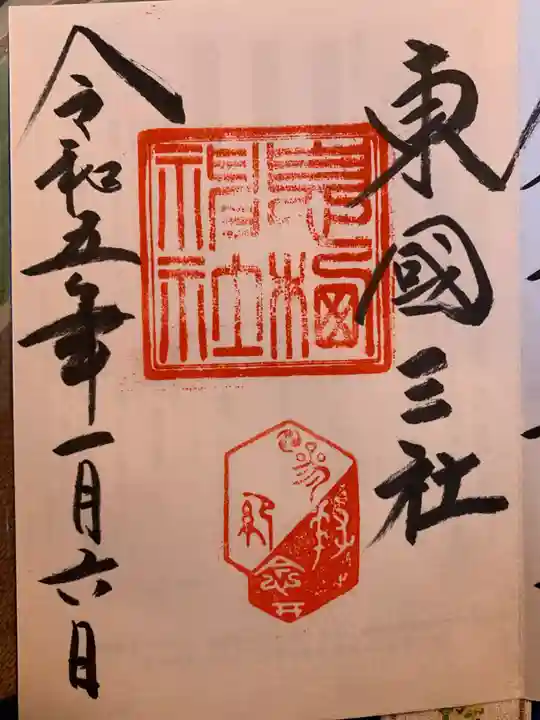 東國三社
息栖神社
令和五年一月六日